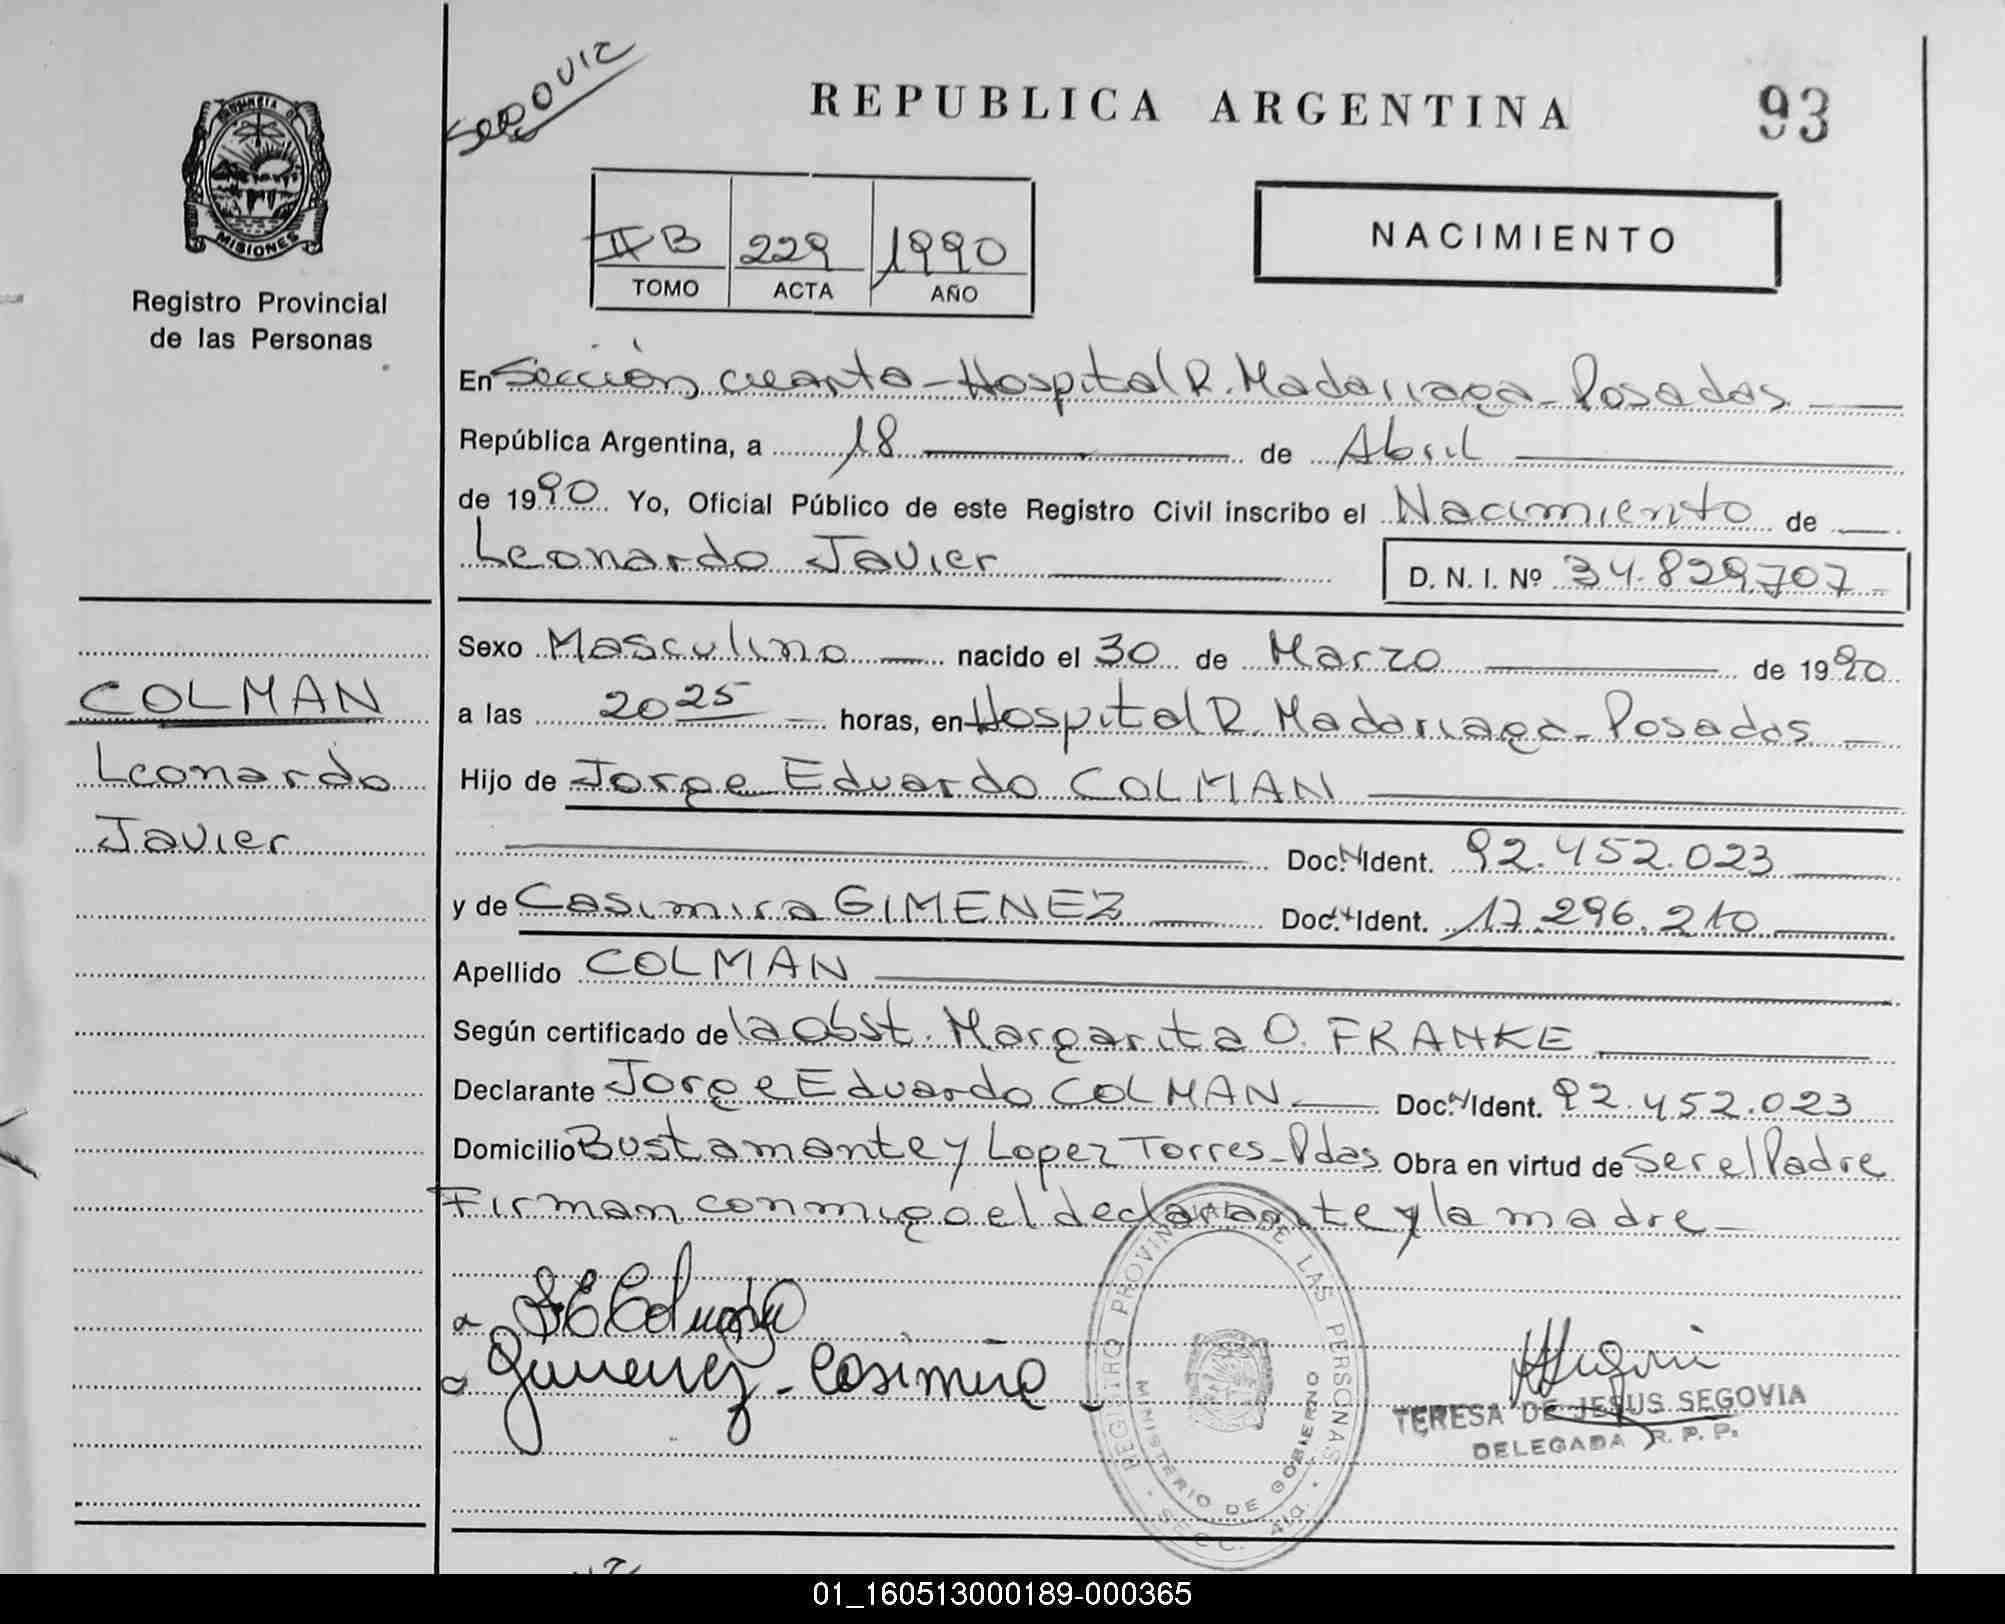 SEGOVIA
REPUBLICA ARGENTINA
93
PROVINCIA D
MISIONES
Registro Provincial
de las Personas
II B 229 1990
TOMO ACTA AÑO
NACIMIENTO
En Sección cuarta - Hospital R. Madariaga - Posadas
República Argentina, a 18 de Abril
de 1990 Yo, Oficial Público de este Registro Civil inscribo el Nacimiento de
Leonardo Javier D. N. I. Nº 34.829.707
COLMAN
Leonardo
Javier
Sexo Masculino nacido el 30 de Marzo de 1990
a las 20 25 horas, en Hospital R. Madariaga - Posadas
Hijo de Jorge Eduardo COLMAN
Doc. Ident. 92.452.023
y de Casimira GIMENEZ Doc. Ident. 17.296.210
Apellido COLMAN
Según certificado de la Obst. Margarita O. FRANKE
Declarante Jorge Eduardo COLMAN Doc. Ident. 92.452.023
Domicilio Bustamante y Lopez Torres - Pdas Obra en virtud de Ser el Padre
Firman conmigo el declarante y la madre
Gimenez - Casimira
REGISTRO PROVINCIAL DE LAS PERSONAS
MINISTERIO DE GOBIERNO
SECC. 4ta.
TERESA DE JESUS SEGOVIA
DELEGADA R. P. P.
01_160513000189-000365